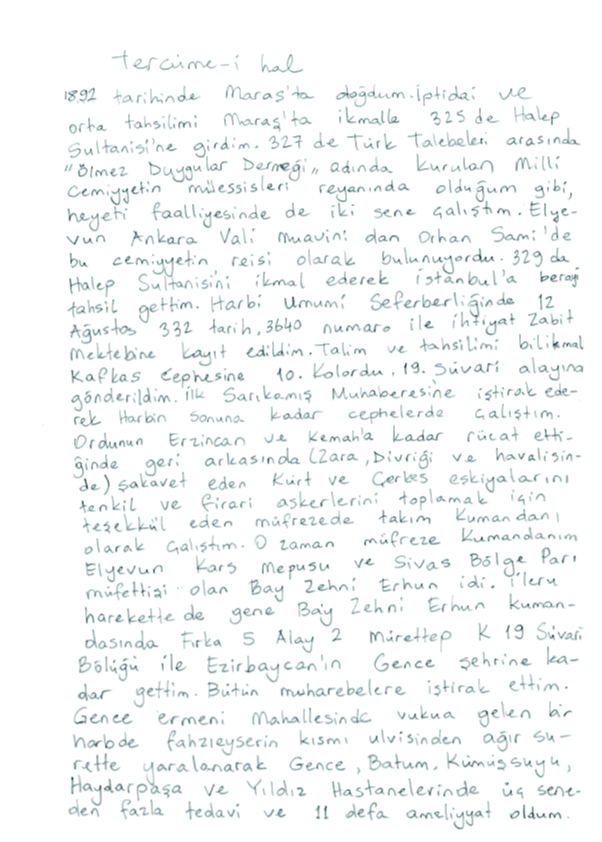 tercüme-i hal
1892 tarihinde Maraş'ta doğdum. İptidai ve
orta tahsilimi Maraş'ta ikmalle 325 de Halep
Sultanisi'ne girdim. 327 de Türk Talebeleri arasında
"Ölmez Duygular Derneği„ adında kurulan Milli
Cemiyyetin müessisleri reyanında olduğum gibi,
heyeti faalliyesinde de iki sene çalıştım. Elye-
vun Ankara Vali muavini dan Orhan Sami'de
bu cemiyyetin reisi olarak bulunuyordu. 329 da
Halep Sultanisini ikmal ederek istanbul'a berayi
tahsil gettim. Harbi Umumi Seferberliğinde 12
Ağustos 332 tarih, 3640 numaro ile ihtiyat Zabit
Mektebine kayıt edildim. Talim ve tahsilimi bilikmal
Kafkas Cephesine 10. Kolordu, 19. Süvari alayına
gönderildim. İlk Sarıkamış Muhaberesine iştirak ede-
rek Harbin Sonuna kadar cephelerde çalıştım.
Ordunun Erzincan ve Kemah'a kadar rücat etti-
ğinde geri arkasında (Zara, Divriği ve havalisin-
de) şakavet eden Kürt ve Çerkes eşkiyalarını
tenkil ve firari askerlerini toplamak için
teşekkül eden müfrezede takım Kumandanı
olarak çalıştım. O zaman müfreze Kumandanım
Elyevun Kars mepusu ve Sivas Bölge Parı
müfettişi olan Bay Zehni Erhun idi. İleru
harekette de gene Bay Zehni Erhun kuman-
dasında Fırka 5 Alay 2 Mürettep K 19 Süvari
Bölüğü ile Ezirbaycan'ın Gence şehrine ka-
dar gettim. Bütün muharebelere iştirak ettim.
Gence ermeni Mahallesinde vukua gelen bir
harbde fahzieyserin kısmı ulvisinden ağır su-
rette yaralanarak Gence, Batum, Kümüşsuyu,
Haydarpaşa ve Yıldız Hastanelerinde üç sene-
den fazla tedavi ve 11 defa ameliyyat oldum.